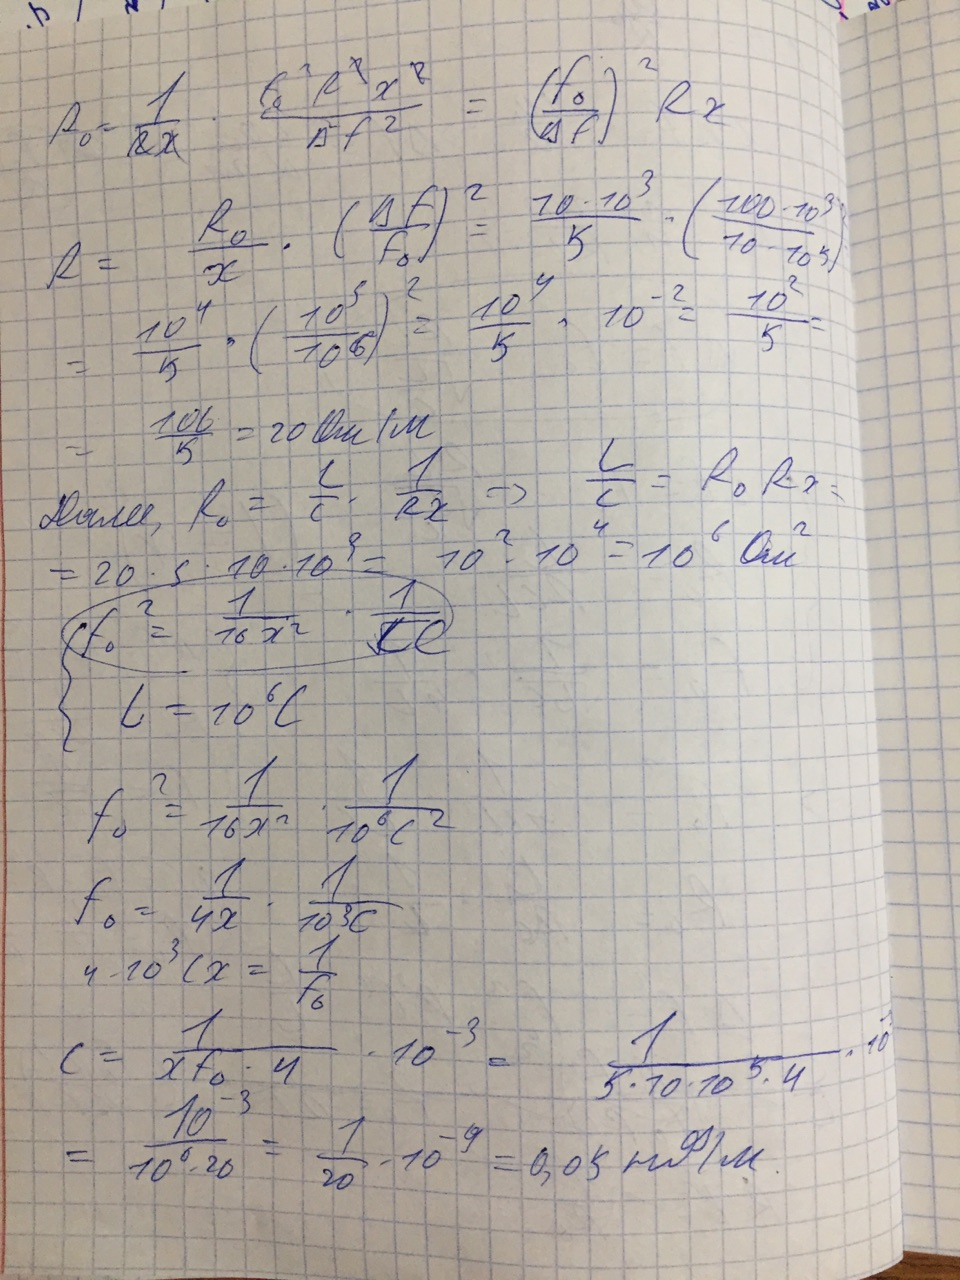 R₀ = 1/(Rx) · (f₀² R² x²)/(Δf²) = (f₀/Δf)² Rx
R = R₀/x · (Δf/f₀)² = (10·10³)/5 · (100·10³/10·10⁵)
= 10⁴/5 · (10⁵/10⁶)² = 10⁴/5 · 10⁻² = 10²/5 =
= 100/5 = 20 Ом/м
Далее, R₀ = L/C · 1/(Rx) → L/C = R₀Rx =
= 20·5·10·10³ = 10²·10⁴ = 10⁶ Ом²
f₀² = 1/(16x²) · 1/(LC)
L = 10⁶C
f₀² = 1/(16x²) · 1/(10⁶C²)
f₀ = 1/(4x) · 1/(10³C)
4·10³Cx = 1/f₀
C = 1/(xf₀·4) · 10⁻³ = 1/(5·10·10⁵·4) · 10
= 10⁻³/(10⁶·20) = 1/20 · 10⁻⁹ = 0,05 нФ/м.